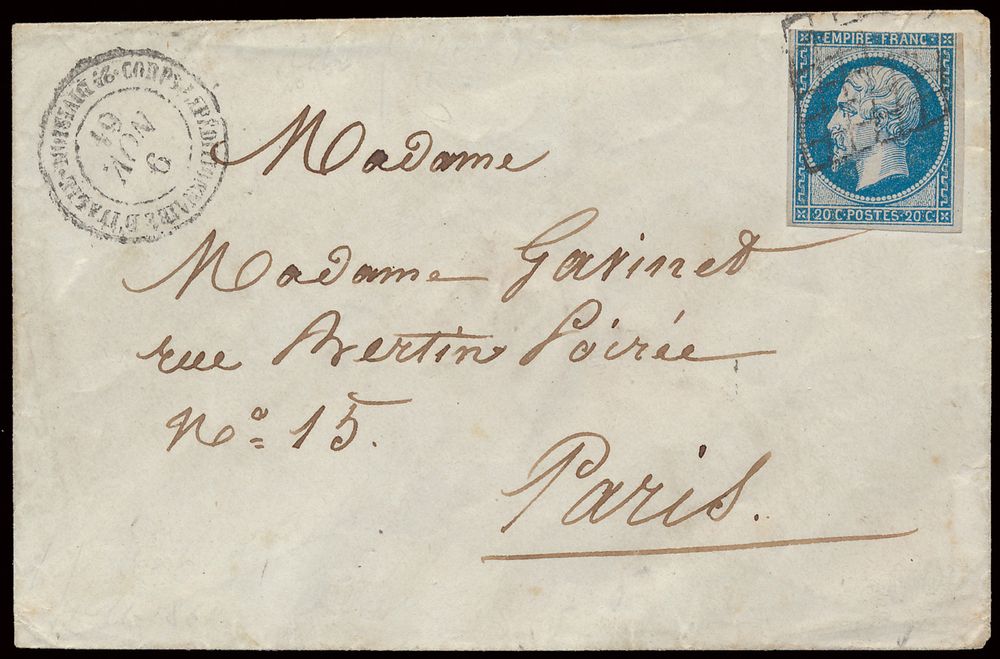 CORPS EXPÉDITIONNAIRE D'ITALIE
2E DIVISION
9
NOV
61
EMPIRE FRANC
20c POSTES 20c
Madame
Madame Garinet
rue Bertin Poirée
No 15.
Paris.